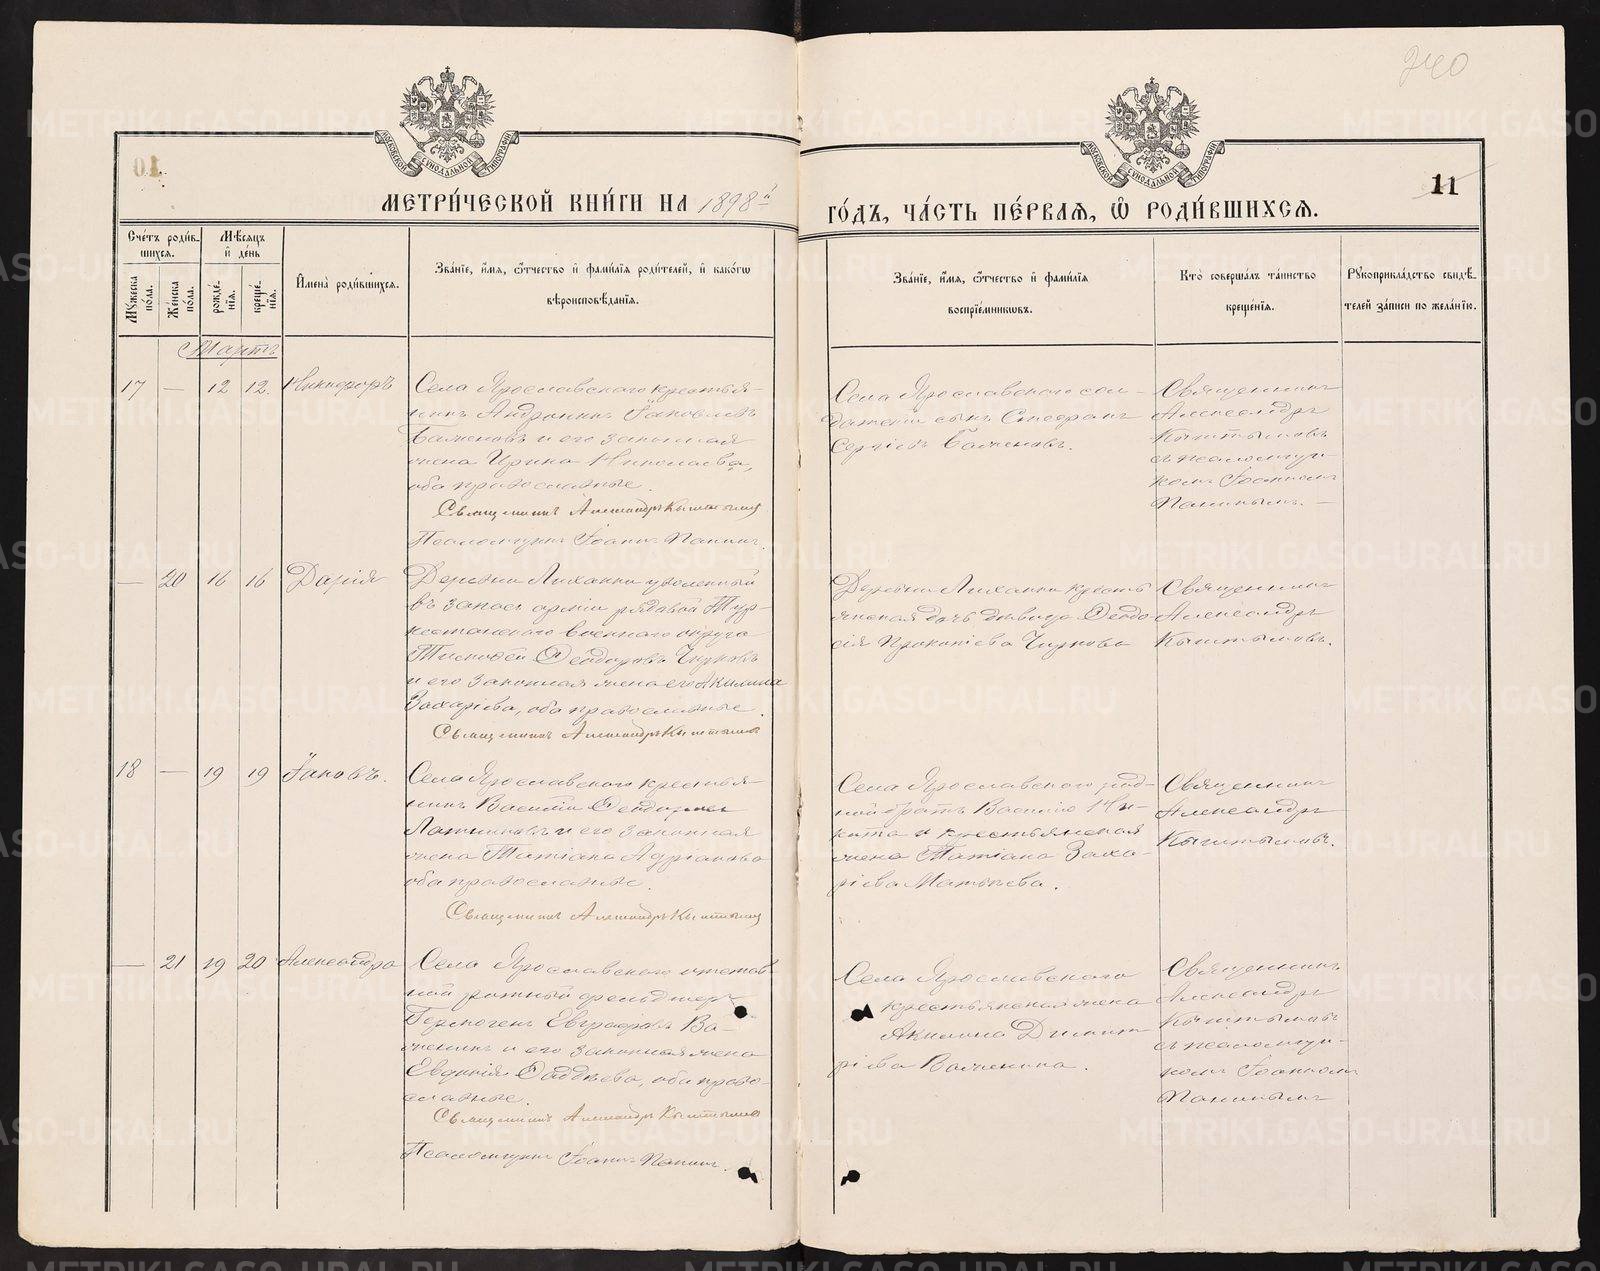 240
11
МОСКОВСКОЙ СѴНОДАЛЬНОЙ ТИПОГРАФІИ
МОСКОВСКОЙ СѴНОДАЛЬНОЙ ТИПОГРАФІИ
МЕТРИ́ЧЕСКОЙ КНИ́ГИ НА 1898й
ГО́ДЪ, ЧА́СТЬ ПЕ́РВАЯ, Ѽ РОДИ́ВШИХСЯ.
Сче́тъ роди́вшихся.
Мѣ́сяцъ и де́нь
Му́жеска по́ла.
Же́нска по́ла.
рожде́нія.
креще́нія.
Имена̀ роди́вшихся.
Зва́ніе, и́мя, ѻ́тчество и фами́лія роди́телей, и како́гѡ
вѣроисповѣ́данія.
Зва́ніе, и́мя, ѻ́тчество и фами́лія
воспріе́мникѡвъ.
Кто̀ соверша́лъ та́инство
креще́нія.
Рꙋкоприкла́дство свидѣ́-
телей за́писи по жела́нію.
Мартъ
17 — 12 12. Никифоръ
Села Ярославскаго крестья-
нинъ Андроникъ Іаковлевъ
Баженовъ и его законная
жена Ирина Николаева,
оба православные.
Священникъ Александръ Кыштымовъ
Псаломщикъ Іоаннъ Папинъ.
Села Ярославскаго сол-
датскій сынъ Стефанъ
Сергіевъ Баженовъ.
Священникъ
Александръ
Кыштымовъ
съ псаломщи-
комъ Іоанномъ
Папинымъ. —
— 20 16 16 Дарія
Деревни Лиханки уволенный
въ запасъ арміи рядовой Тур-
кестанскаго военнаго округа
Тимофей Ѳеодоровъ Чирковъ
и его законная жена его Акилина
Захаріева, оба православные.
Священникъ Александръ Кыштымовъ
Деревни Лиханки кресть
янская дочь дѣвица Ѳеодо-
сія Прокопіева Чиркова
Священникъ
Александръ
Кыштымовъ.
18 — 19 19 Іаковъ.
Села Ярославскаго крестья-
нинъ Василій Ѳеодоровъ
и его законная
жена Татіана Адріанова
оба православные.
Священникъ Александръ Кыштымовъ
Села Ярославскаго род-
ной братъ Василію Ни-
кита и крестьянская
жена Татіана Заха-
ріева Матвѣева.
Священникъ
Александръ
Кыштымовъ.
— 21 19 20 Александра
Села Ярославскаго отстав-
ной ротный фельдшеръ
Гермогенъ Евграфовъ Ва-
женинъ и его законная жена
Евдокія Ѳаддѣева, оба право-
славные.
Священникъ Александръ Кыштымовъ
Псаломщикъ Іоаннъ Папинъ.
Села Ярославскаго
крестьянская жена
Акилина Димит-
ріева Важенина.
Священникъ
Александръ
Кыштымовъ
съ псаломщи-
комъ Іоанномъ
Папинымъ
METRIKI.GASO-URAL.RU